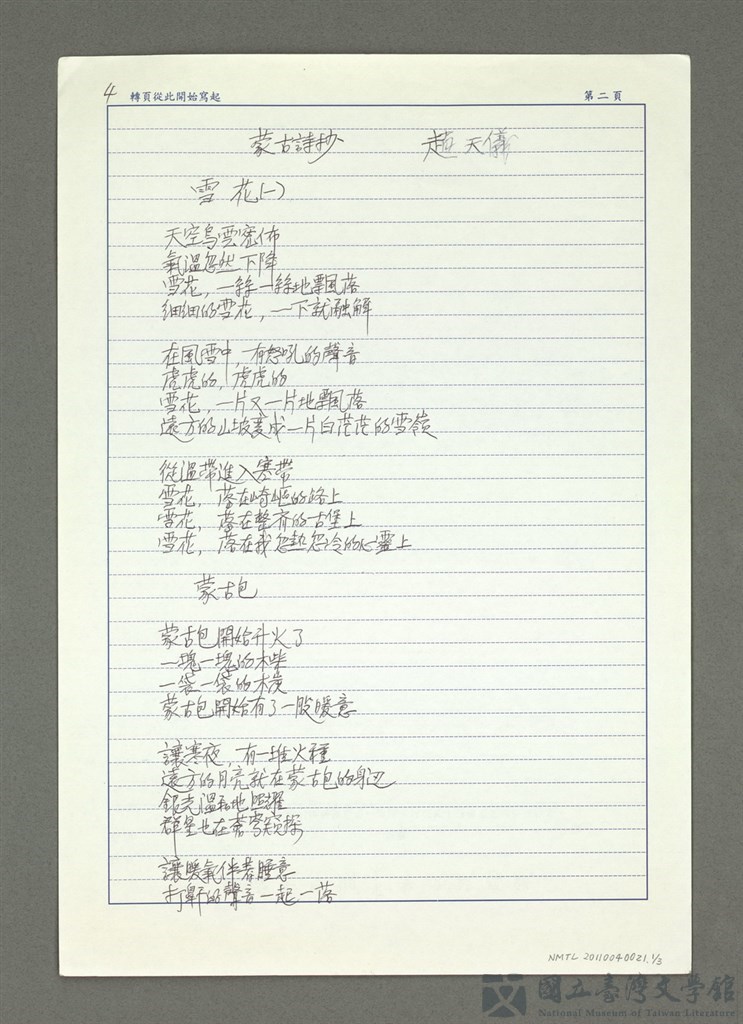 4 轉頁從此開始寫起 第二頁
蒙古詩抄 趙天儀
雪花(一)
天空烏雲密佈
氣溫忽然下降
雪花，一絲一絲地飄落
細細的雪花，一下就融解
在風雪中，有怒吼的聲音
虎虎的，虎虎的
雪花，一片又一片地飄落
遠方的山坡變成一片白茫茫的雪嶺
從溫帶進入寒帶
雪花，落在崎嶇的路上
雪花，落在整齊的古堡上
雪花，落在我忽熱忽冷的心靈上
蒙古包
蒙古包開始升火了
一塊一塊的木柴
一袋一袋的木炭
蒙古包開始有了一股暖意
讓寒夜，有一堆火種
遠方的月亮就在蒙古包的身边
銀光溫和地照耀
群星也在蒼穹窺探
讓暖氣伴著睡意
打鼾的聲音一起一落
NMTL 20110040021.1/3
國立臺灣文學館
National Museum of Taiwan Literature